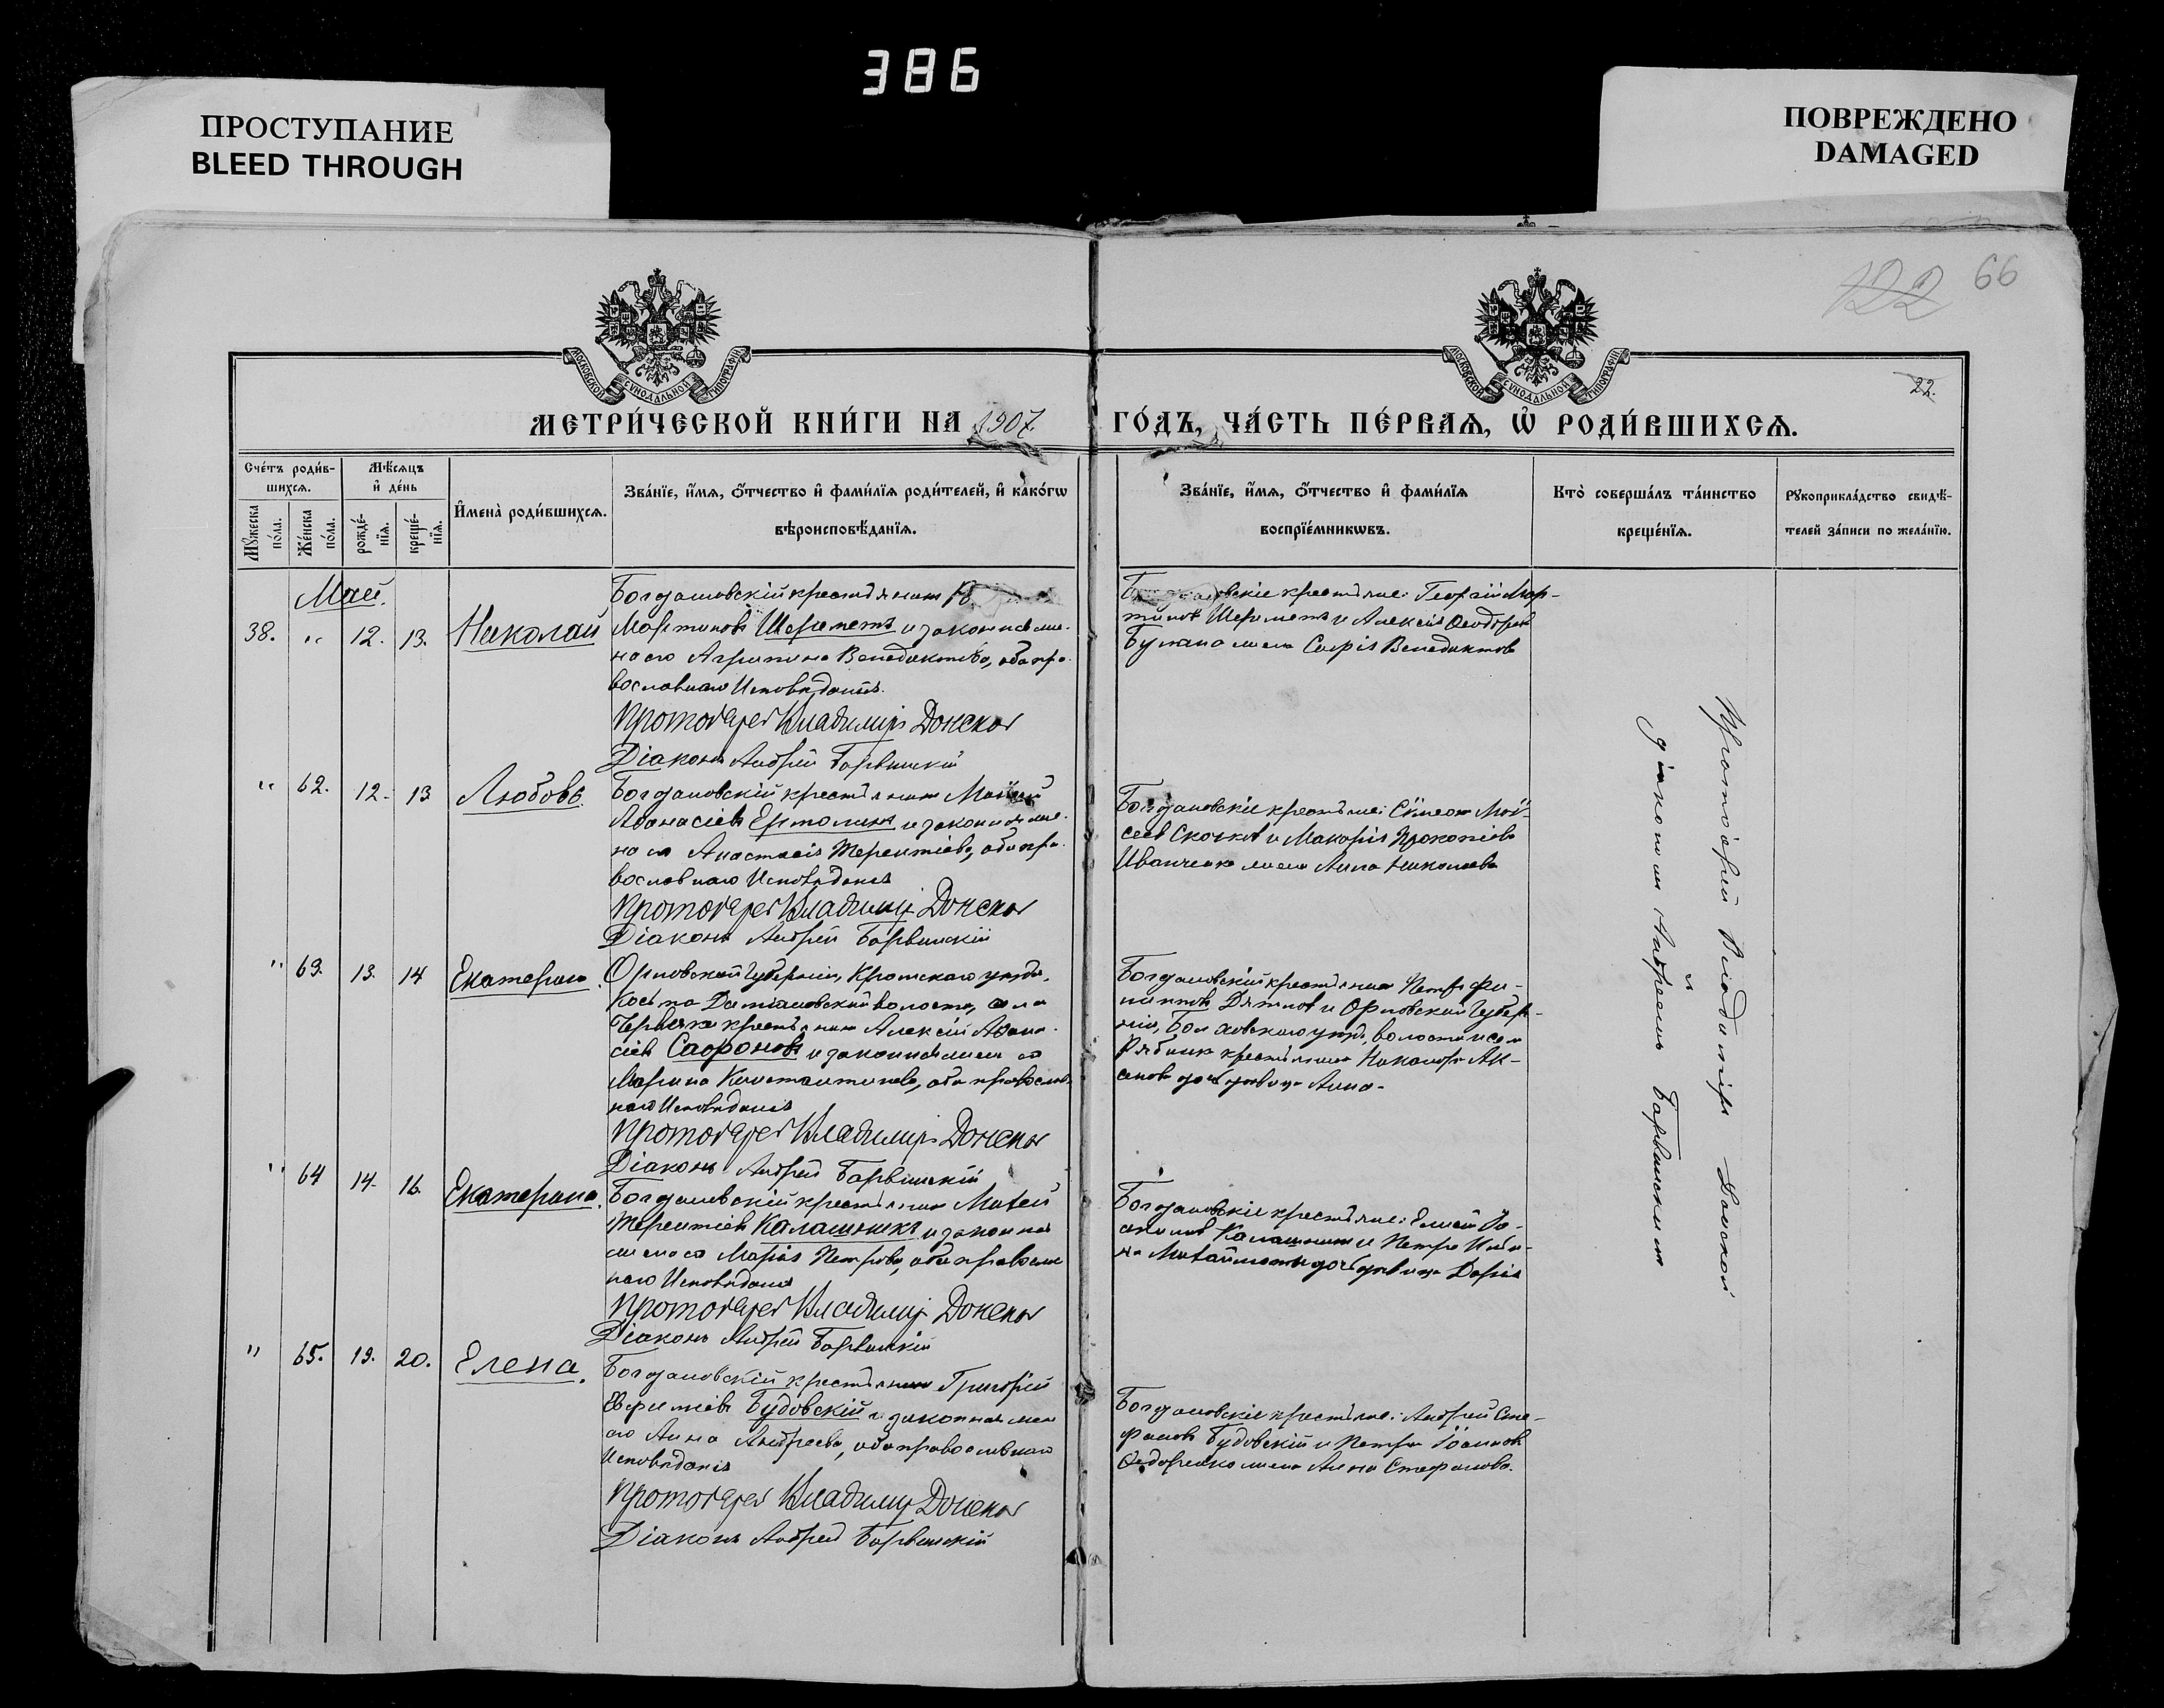 386
ПРОСТУПАНИЕ
BLEED THROUGH
ПОВРЕЖДЕНО
DAMAGED
122 66
22.
МОСКОВСКОЙ СѴНОДАЛЬНОЙ ТИПОГРАФІИ
МОСКОВСКОЙ СѴНОДАЛЬНОЙ ТИПОГРАФІИ
МЕТРИ́ЧЕСКОЙ КНИ́ГИ НА 1907 ГО́ДЪ, ЧА́СТЬ ПЕ́РВАѦ, Ѡ҆ РОДИ́ВШИХСѦ.
Сче́тъ роди́в-
шихсѧ.
Мꙋ́жеска
по́ла.
Же́нска
по́ла.
Мѣ́сѧцъ
и҆ де́нь
рожде́-
нїѧ.
креще́-
нїѧ.
И҆мена̀ роди́вшихсѧ.
Зва́нїе, и҆́мѧ, ѻ҆́тчество и҆ фами́лїѧ роди́телей, и҆ како́гѡ
вѣроисповѣ́данїѧ.
Зва́нїе, и҆́мѧ, ѻ҆́тчество и҆ фами́лїѧ
воспрїе́мникѡвъ.
Кто̀ соверша́лъ та́инство
креще́нїѧ.
Рꙋкоприкла́дство свидѣ́-
телей за́писи по жела́нїю.
Май.
38. " 12. 13. Николай
Богдановскій крестьянинъ
Мартиновъ Шереметъ и законная же-
на его Агрипина Венедиктова, оба пра-
вославнаго Исповѣданія.
Протоіерей Владиміръ Донской
Діаконъ Андрей Барвинскій
крестьяне: Георгій Мар-
тиновъ Шереметъ и Алексія Ѳеодоров
жена Софія Венедиктов
" 62. 12. 13 Любовь.
Богдановскій крестьянинъ Моисей
Аѳанасіевъ Ермолинъ и законная же-
на его Анастасія Терентіева, оба пра-
вославнаго Исповѣданія
Протоіерей Владиміръ Донской
Діаконъ Андрей Барвинскій
Богдановскіе крестьяне: Сѵмеонъ Мои-
сеев и Макарія Прокопіева
Иванченко жена Анна Николаева
" 63. 13. 14 Екатерина.
Орловской Губерніи, Кромскаго уѣзда,
Косьмо Даміановской волости, села
крестьянинъ Алексій Аѳана-
сіевъ Сафоновъ и законная жена его
Марина Константинова, оба православ-
наго Исповѣданія
Протоіерей Владиміръ Донской
Діаконъ Андрей Барвинскій
Богдановскій крестьянинъ Петръ Фи-
липповъ Дятлов и Орловской Губер-
ніи, Болховскаго уѣзда, волости и села
крестьянина Никанора
дочь дѣвица Анна.
" 64 14. 16. Екатерина.
Богдановскій крестьянинъ Матѳей
Терентіевъ Калашникъ и законная
жена его Марія Петрова, оба православ
наго Исповѣданія
Протоіерей Владиміръ Донской
Діаконъ Андрей Барвинскій
Богдановскіе крестьяне:
Калашник и Петра Ива-
дочь дѣвица Дарія
" 65. 19. 20. Елена.
Богдановскій крестьянинъ Григорій
Евфиміевъ Будовскій и законная жена
его Анна Андреева, оба православнаго
Исповѣданія
Протоіерей Владиміръ Донской
Діаконъ Андрей Барвинскій
Богдановскіе крестьяне: Андрей Сте-
фановъ Будовскій и Петра Іоаннов
Ѳедоренко жена Анна Стефанова.
Протоіерей Владиміръ Донской
съ
діакономъ Андреемъ Барвинскимъ